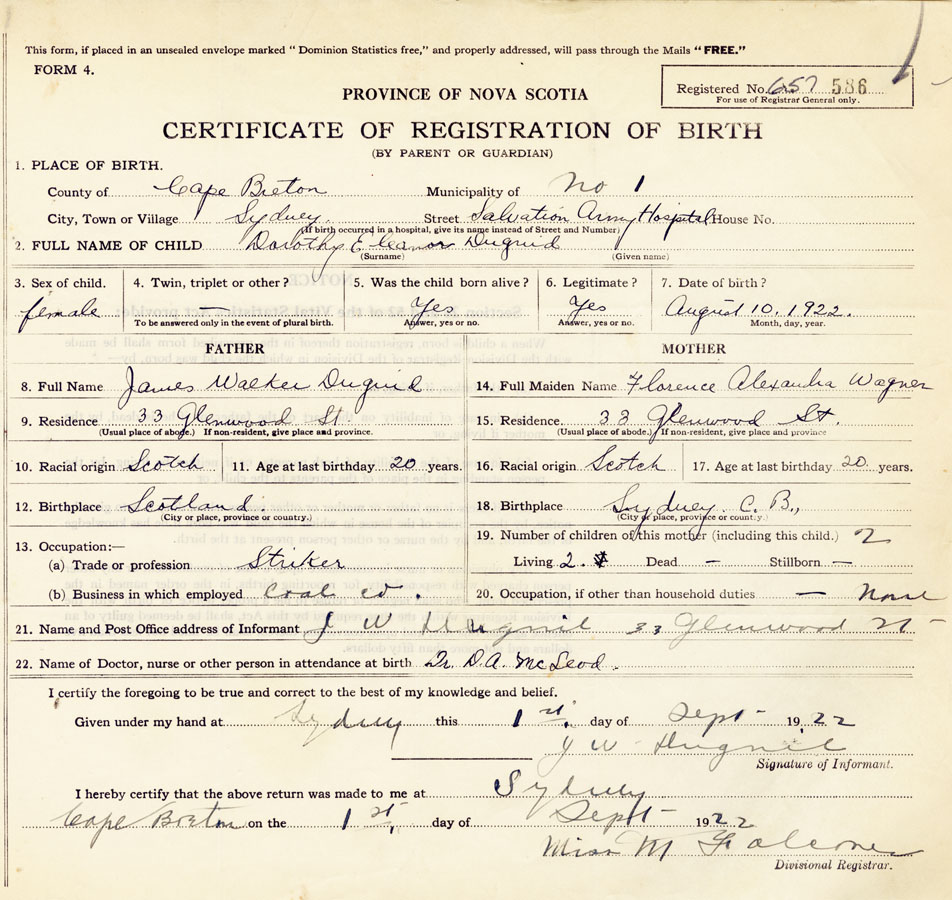 This form, if placed in an unsealed envelope marked "Dominion Statistics free," and properly addressed, will pass through the Mails "FREE."
FORM 4.
Registered No. 657 586
For use of Registrar General only.
PROVINCE OF NOVA SCOTIA
CERTIFICATE OF REGISTRATION OF BIRTH
(BY PARENT OR GUARDIAN)
1. PLACE OF BIRTH.
County of Cape Breton Municipality of No 1
City, Town or Village Sydney. Street Salvation Army Hospital House No.
(If birth occurred in a hospital, give its name instead of Street and Number)
2. FULL NAME OF CHILD Dorothy Eleanor Duguid
(Surname) (Given name)
3. Sex of child. 4. Twin, triplet or other? 5. Was the child born alive? 6. Legitimate? 7. Date of birth?
female — Yes Yes August 10, 1922.
To be answered only in the event of plural birth. Answer, yes or no. Answer, yes or no. Month, day, year.
FATHER MOTHER
8. Full Name James Walker Duguid 14. Full Maiden Name Florence Alexandra Wagner
9. Residence 33 Glenwood St. 15. Residence 33 Glenwood St.
(Usual place of abode.) If non-resident, give place and province. (Usual place of abode.) If non-resident, give place and province
10. Racial origin Scotch 11. Age at last birthday 20 years. 16. Racial origin Scotch 17. Age at last birthday 20 years.
12. Birthplace Scotland. 18. Birthplace Sydney C. B.,
(City or place, province or country.) (City or place, province or country.)
13. Occupation:— 19. Number of children of this mother (including this child.) 2
(a) Trade or profession Striker Living 2. Dead — Stillborn —
(b) Business in which employed Coal Co. 20. Occupation, if other than household duties — None
21. Name and Post Office address of Informant J W Duguid 33 Glenwood St
22. Name of Doctor, nurse or other person in attendance at birth Dr. D.A. McLeod.
I certify the foregoing to be true and correct to the best of my knowledge and belief.
Given under my hand at Sydney this 1st. day of Sept - 1922
J W Duguid
Signature of Informant.
I hereby certify that the above return was made to me at Sydney
Cape Breton on the 1st, day of Sept 1922
Miss M Falconer
Divisional Registrar.